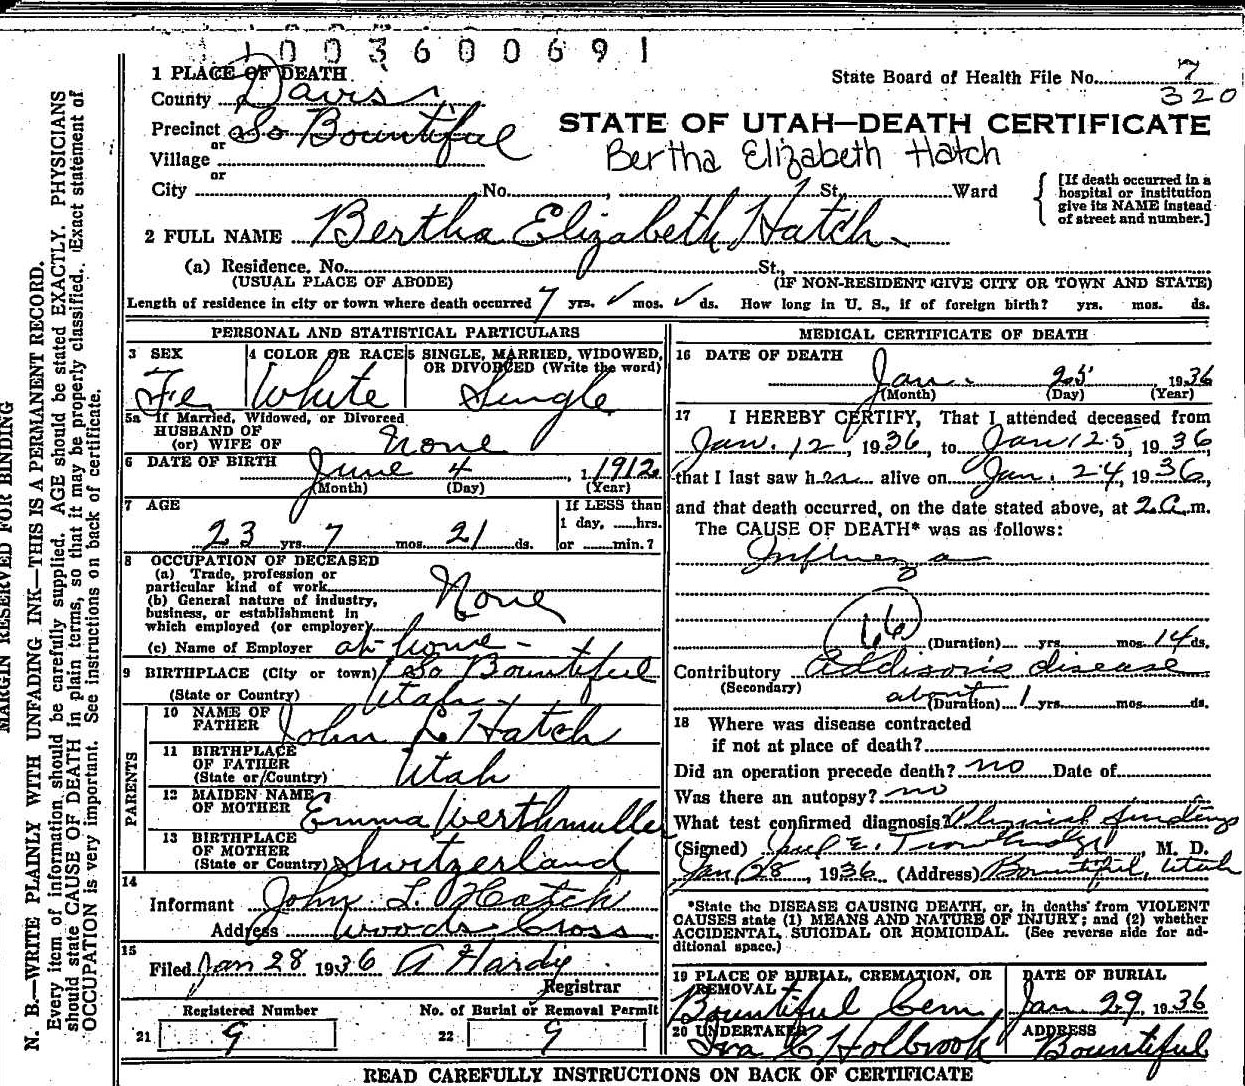 1003600691
1 PLACE OF DEATH
State Board of Health File No. 7
320
County Davis
Precinct So Bountiful
or
Village
or
STATE OF UTAH—DEATH CERTIFICATE
Bertha Elizabeth Hatch
City No. , St., Ward
[If death occurred in a
hospital or institution
give its NAME instead
of street and number.]
2 FULL NAME Bertha Elizabeth Hatch
(a) Residence. No. St.,
(USUAL PLACE OF ABODE) (IF NON-RESIDENT GIVE CITY OR TOWN AND STATE)
Length of residence in city or town where death occurred 7 yrs. ✓ mos. ✓ ds. How long in U. S., if of foreign birth? yrs. mos. ds.
PERSONAL AND STATISTICAL PARTICULARS
3 SEX
Fe
4 COLOR OR RACE
White
5 SINGLE, MARRIED, WIDOWED,
OR DIVORCED (Write the word)
Single
5a If Married, Widowed, or Divorced
HUSBAND OF
(or) WIFE OF None
6 DATE OF BIRTH June 4, 1912
(Month) (Day) (Year)
7 AGE
23 yrs. 7 mos. 21 ds.
If LESS than
1 day, hrs.
or min.?
8 OCCUPATION OF DECEASED
(a) Trade, profession or
particular kind of work
(b) General nature of industry,
business, or establishment in
which employed (or employer)
None
(c) Name of Employer at home
9 BIRTHPLACE (City or town) So Bountiful
(State or Country) Utah
PARENTS
10 NAME OF
FATHER John L Hatch
11 BIRTHPLACE
OF FATHER
(State or Country) Utah
12 MAIDEN NAME
OF MOTHER Emma Werthmuller
13 BIRTHPLACE
OF MOTHER
(State or Country) Switzerland
14
Informant John L. Hatch
Address Woods Cross
15
Filed Jan 28 1936 A Hardy
Registrar
Registered Number
21 9
No. of Burial or Removal Permit
22 9
MEDICAL CERTIFICATE OF DEATH
16 DATE OF DEATH
Jan. 25, 1936
(Month) (Day) (Year)
17 I HEREBY CERTIFY, That I attended deceased from
Jan. 12, 1936, to Jan 25, 1936,
that I last saw her alive on Jan. 24, 1936,
and that death occurred, on the date stated above, at 2 a.m.
The CAUSE OF DEATH* was as follows:
Influenza
66
(Duration) yrs. mos. 14 ds.
Contributory Addison's disease
(Secondary)
about
(Duration) 1 yrs. mos. ds.
18 Where was disease contracted
if not at place of death?
Did an operation precede death? no Date of
Was there an autopsy? no
What test confirmed diagnosis? Physical findings
(Signed) M. D.
Jan 28, 1936 (Address) Bountiful, Utah
*State the DISEASE CAUSING DEATH, or, in deaths from VIOLENT
CAUSES state (1) MEANS AND NATURE OF INJURY; and (2) whether
ACCIDENTAL, SUICIDAL OR HOMICIDAL. (See reverse side for ad-
ditional space.)
19 PLACE OF BURIAL, CREMATION, OR
REMOVAL
Bountiful Cem
DATE OF BURIAL
Jan 29, 1936
20 UNDERTAKER
Ira C Holbrook
ADDRESS
Bountiful
READ CAREFULLY INSTRUCTIONS ON BACK OF CERTIFICATE
MARGIN RESERVED FOR BINDING
N. B.—WRITE PLAINLY WITH UNFADING INK—THIS IS A PERMANENT RECORD.
Every item of information should be carefully supplied. AGE should be stated EXACTLY. PHYSICIANS
should state CAUSE OF DEATH in plain terms, so that it may be properly classified. Exact statement of
OCCUPATION is very important. See instructions on back of certificate.